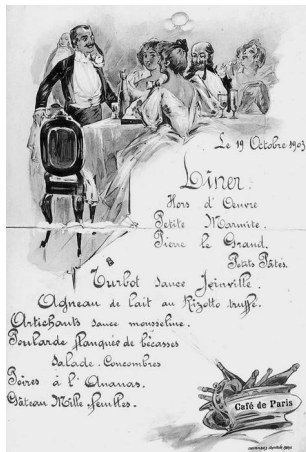 Le 19 Octobre 1903
Dîner.
Hors d'Œuvre
Petite Marmite.
Pierre le Grand.
Petits Pâtés.
Turbot sauce Joinville.
Agneau de lait au Rizotto truffé.
Artichauts sauce mousseline.
Poularde flanquée de bécasses
Salade. Concombres
Poires à l'Ananas.
Gâteau Mille feuilles.
Café de Paris